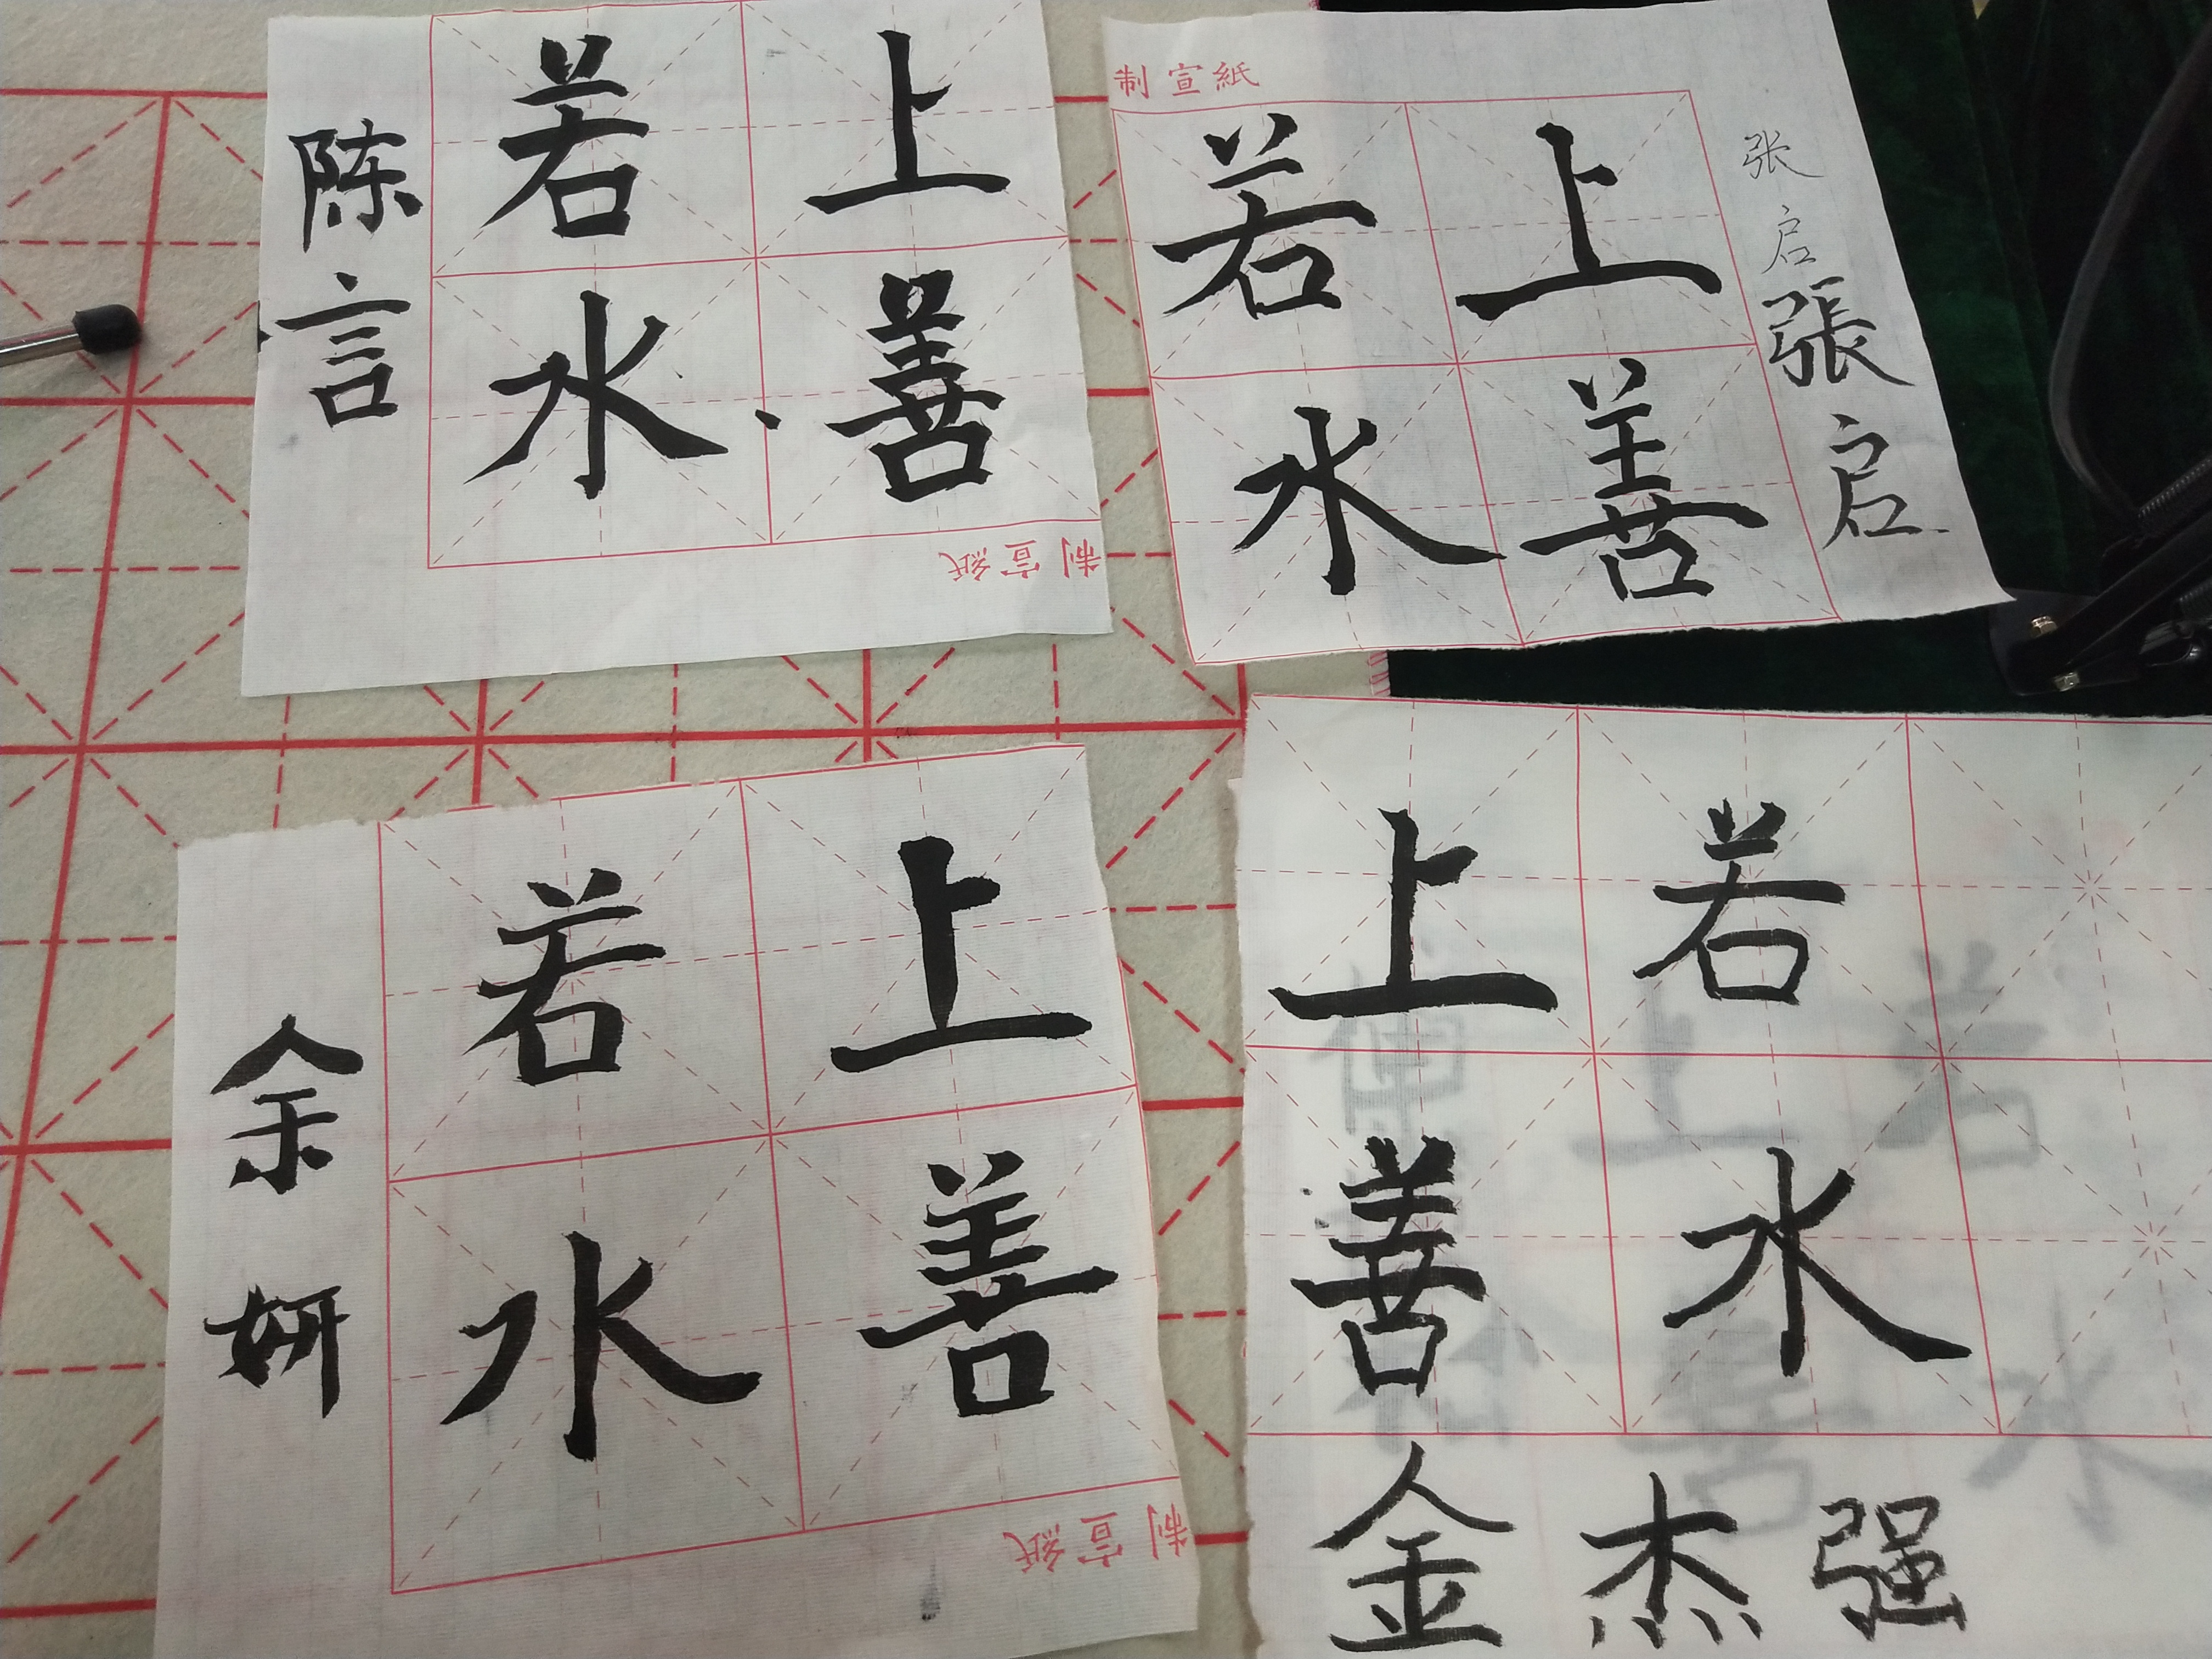 上善
若水
陈言
制宣紙
制宣紙
张启
張启
上善
若水
上善
若水
余妍
制宣紙
上善
若水
金杰强